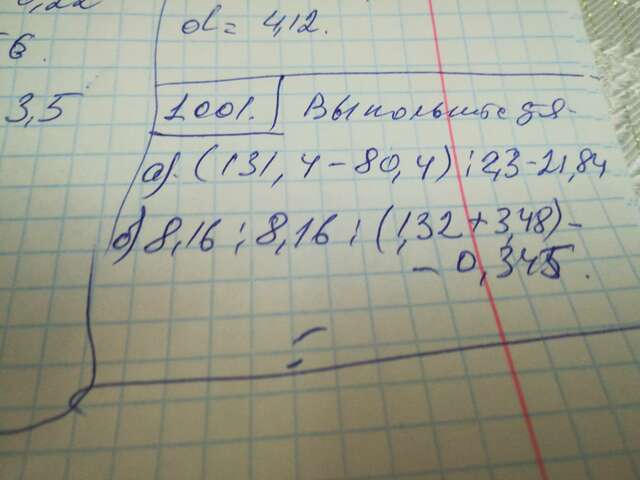 0,22
6.
3,5
d = 4,12.
1001. Выполните дя-
а). (131,4 - 80,4) : 2,3 - 21,84
б) 8,16 : 8,16 : (1,32 + 3,48) -
- 0,345.